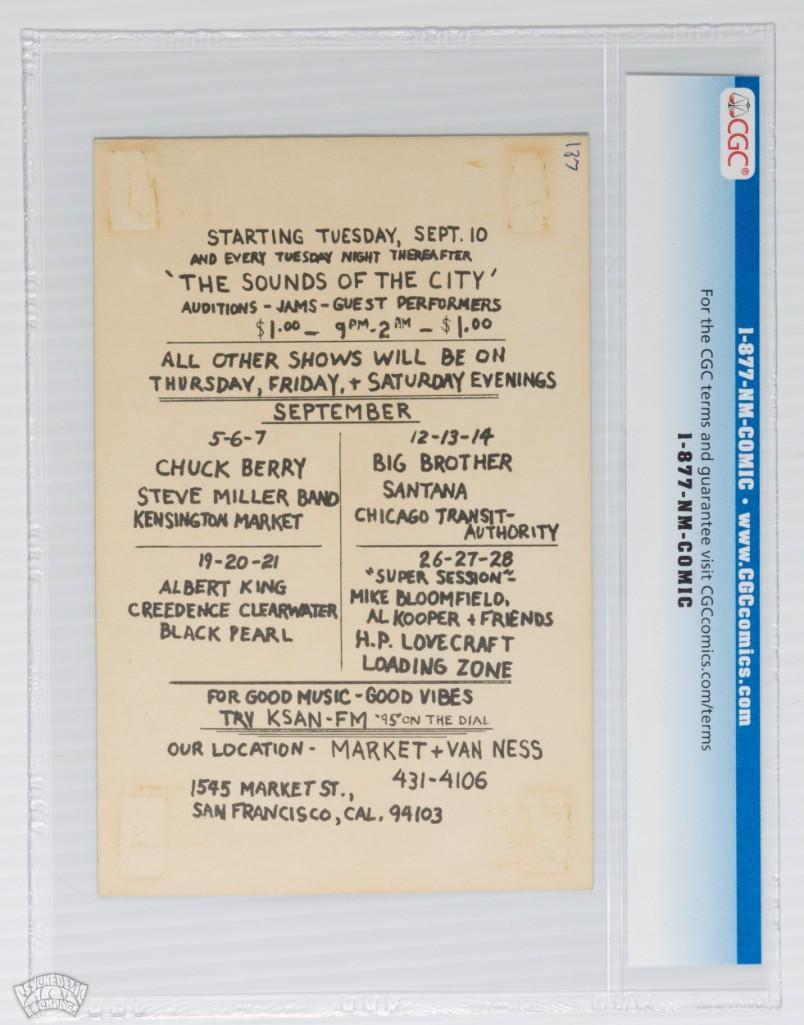 137
STARTING TUESDAY, SEPT. 10
AND EVERY TUESDAY NIGHT THEREAFTER
'THE SOUNDS OF THE CITY'
AUDITIONS - JAMS - GUEST PERFORMERS
$1.00 - 9PM-2AM - $1.00
ALL OTHER SHOWS WILL BE ON
THURSDAY, FRIDAY, + SATURDAY EVENINGS
SEPTEMBER
5-6-7
CHUCK BERRY
STEVE MILLER BAND
KENSINGTON MARKET
12-13-14
BIG BROTHER
SANTANA
CHICAGO TRANSIT-
AUTHORITY
19-20-21
ALBERT KING
CREEDENCE CLEARWATER
BLACK PEARL
26-27-28
"SUPER SESSION"-
MIKE BLOOMFIELD,
AL KOOPER + FRIENDS
H.P. LOVECRAFT
LOADING ZONE
FOR GOOD MUSIC - GOOD VIBES
TRY KSAN-FM '95 ON THE DIAL
OUR LOCATION - MARKET + VAN NESS
1545 MARKET ST., 431-4106
SAN FRANCISCO, CAL. 94103
CGC®
1-877-NM-COMIC • www.CGCcomics.com
For the CGC terms and guarantee visit CGCcomics.com/terms
1-877-NM-COMIC
PSYCHEDELIC
ART
EXCHANGE